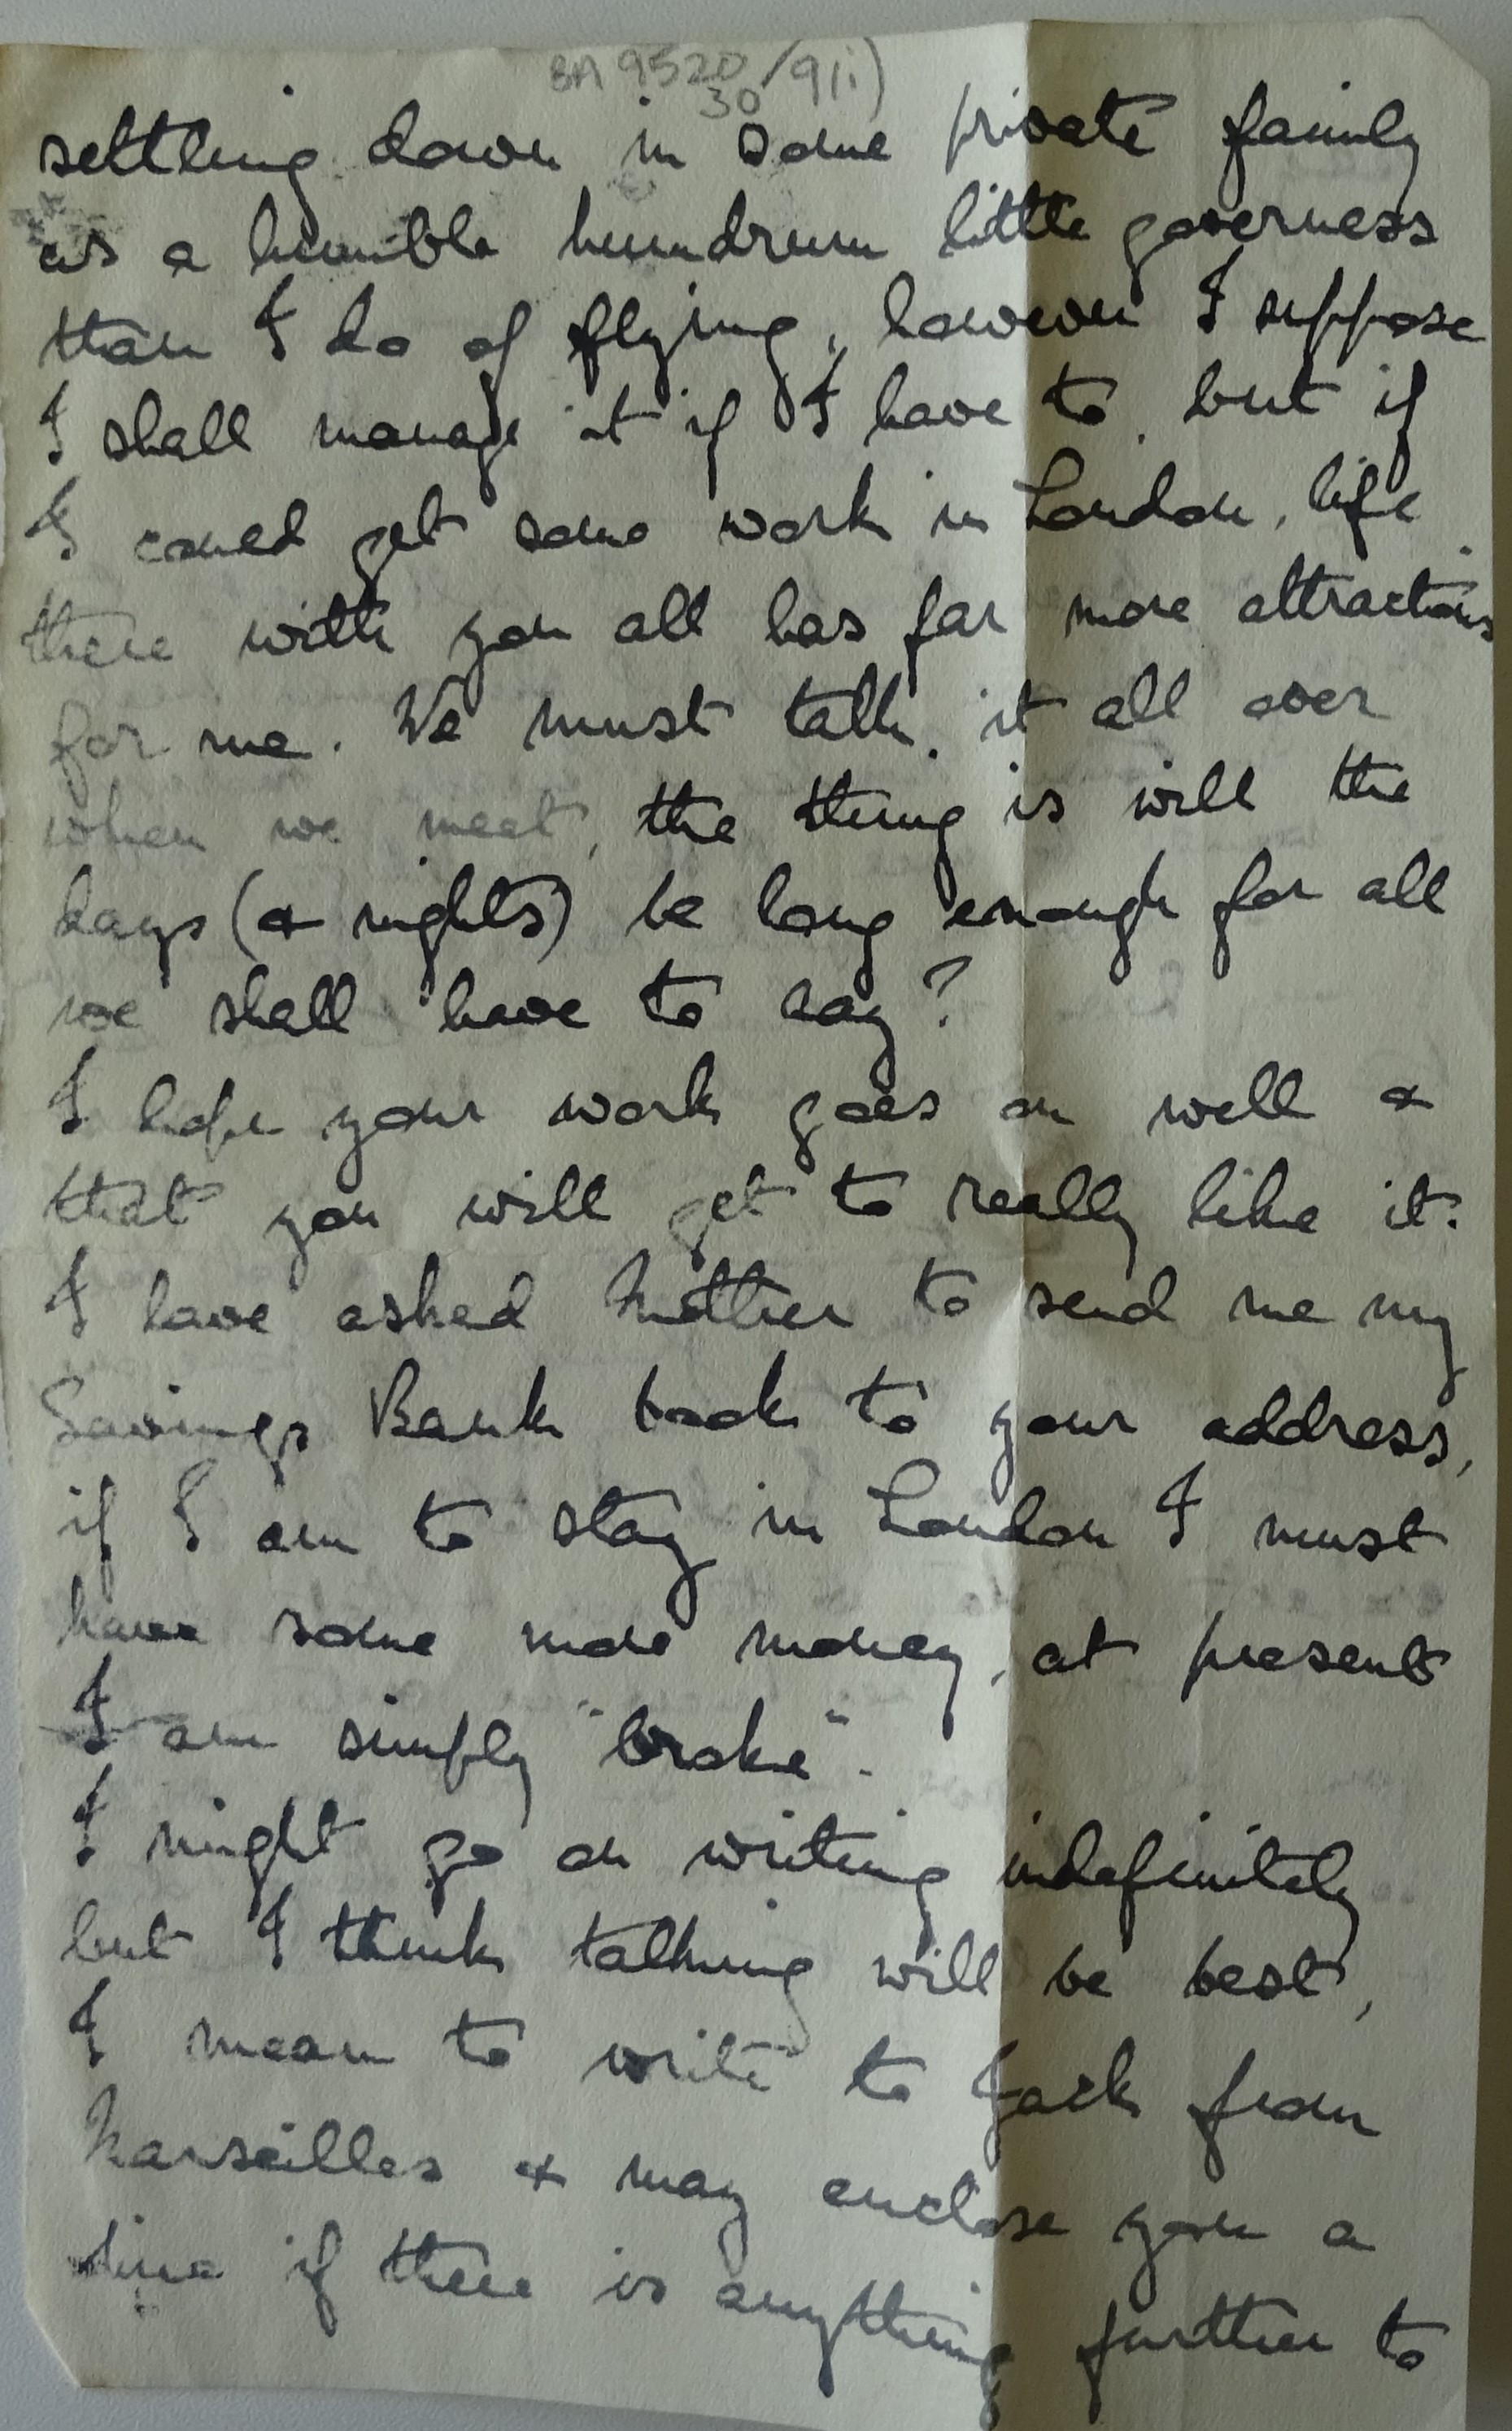 BA 9520/9(i)
30
settling down in some private family
as a humble humdrum little governess
than I do of flying, however I suppose
I shall manage it if I have to, but if
I could get some work in London, life
there with you all has far more attractions
for me. We must talk it all over
when we meet, the thing is will the
days (& nights) be long enough for all
we shall have to say?
I hope your work goes on well &
that you will get to really like it.
I have asked Mother to send me my
Savings Bank book to your address,
if I am to stay in London I must
have some more money, at present
I am simply "broke".
I might go on writing indefinitely
but I think talking will be best,
I mean to write to Jack from
Marseilles & may enclose you a
line if there is anything further to